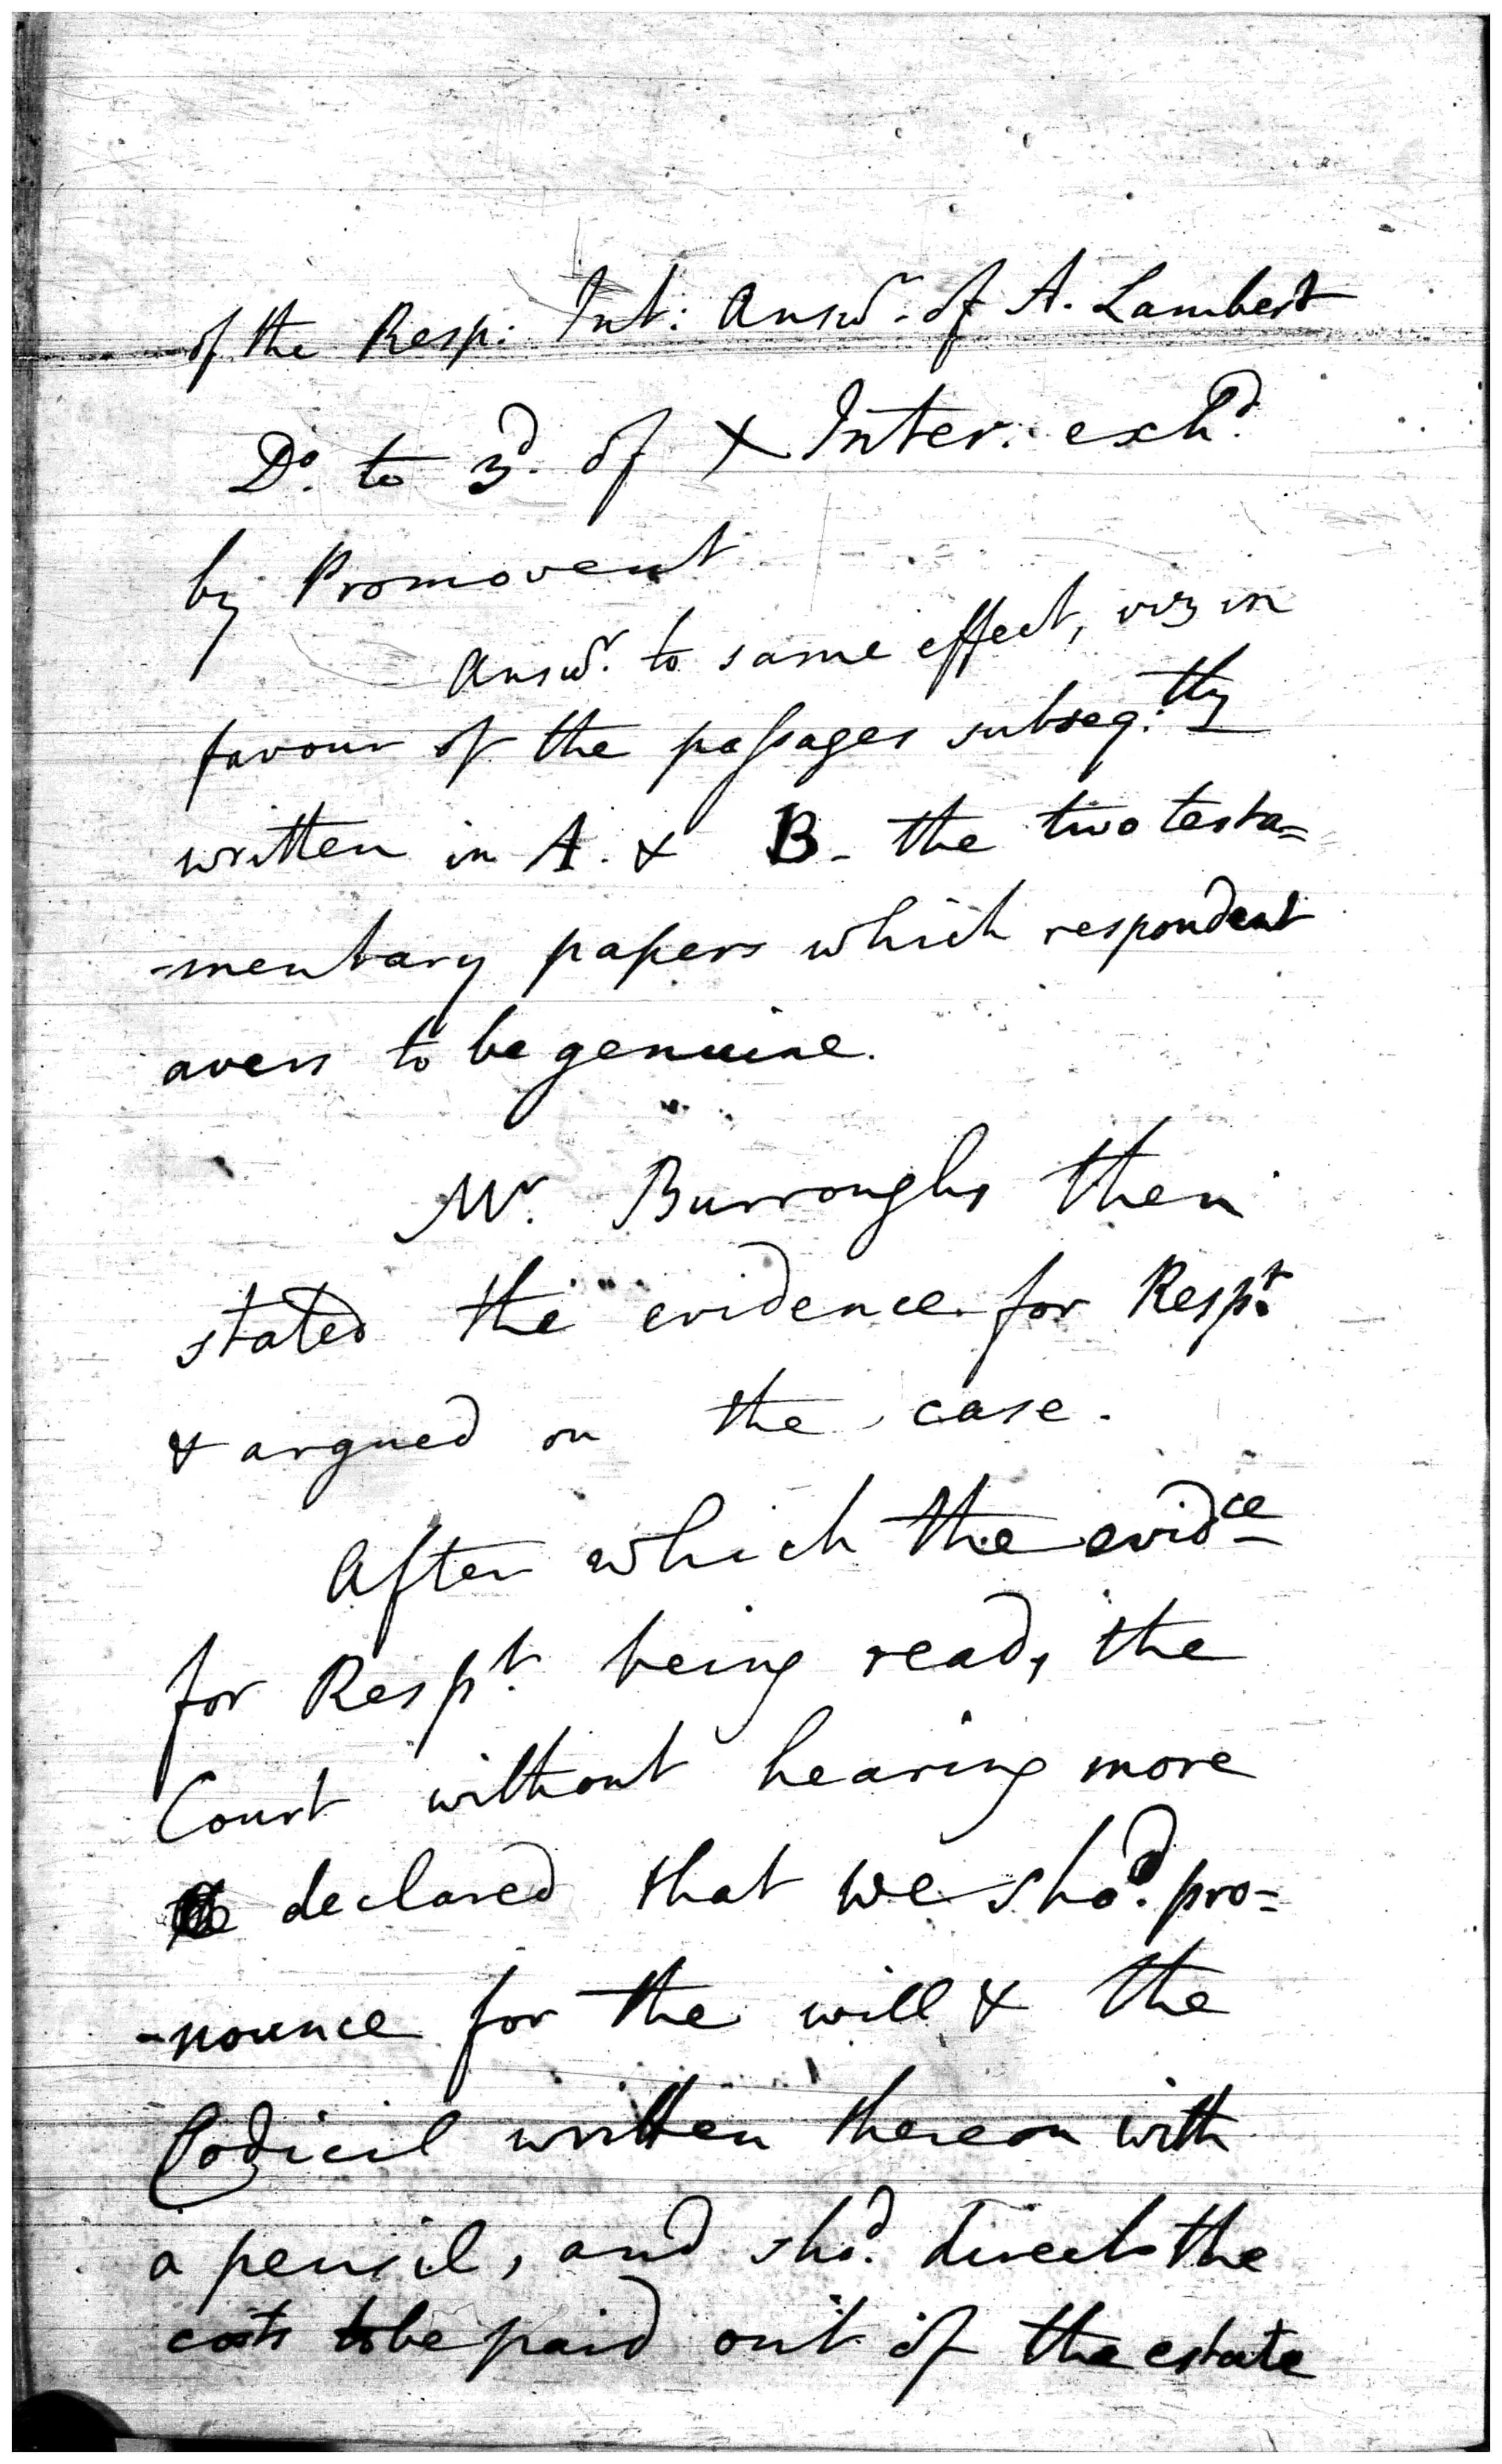 of the Resp: Int: Answr. of A. Lambert
Do. to 3d. of X Inter. exhd.
by Promovent
Answr. to same effect, viz in
favour of the passages subseq:tly
written in A. & B. the two testa=
-mentary papers which respondent
avers to be genuine.
Mr. Burroughs then
stated the evidence for Respt.
& argued on the case.
After which the evidce
for Respt. being read, the
Court without hearing more
declared that we shod. pro=
-nounce for the will & the
Codicil written thereon with
a pencil, and shd. direct the
costs to be paid out of the estate